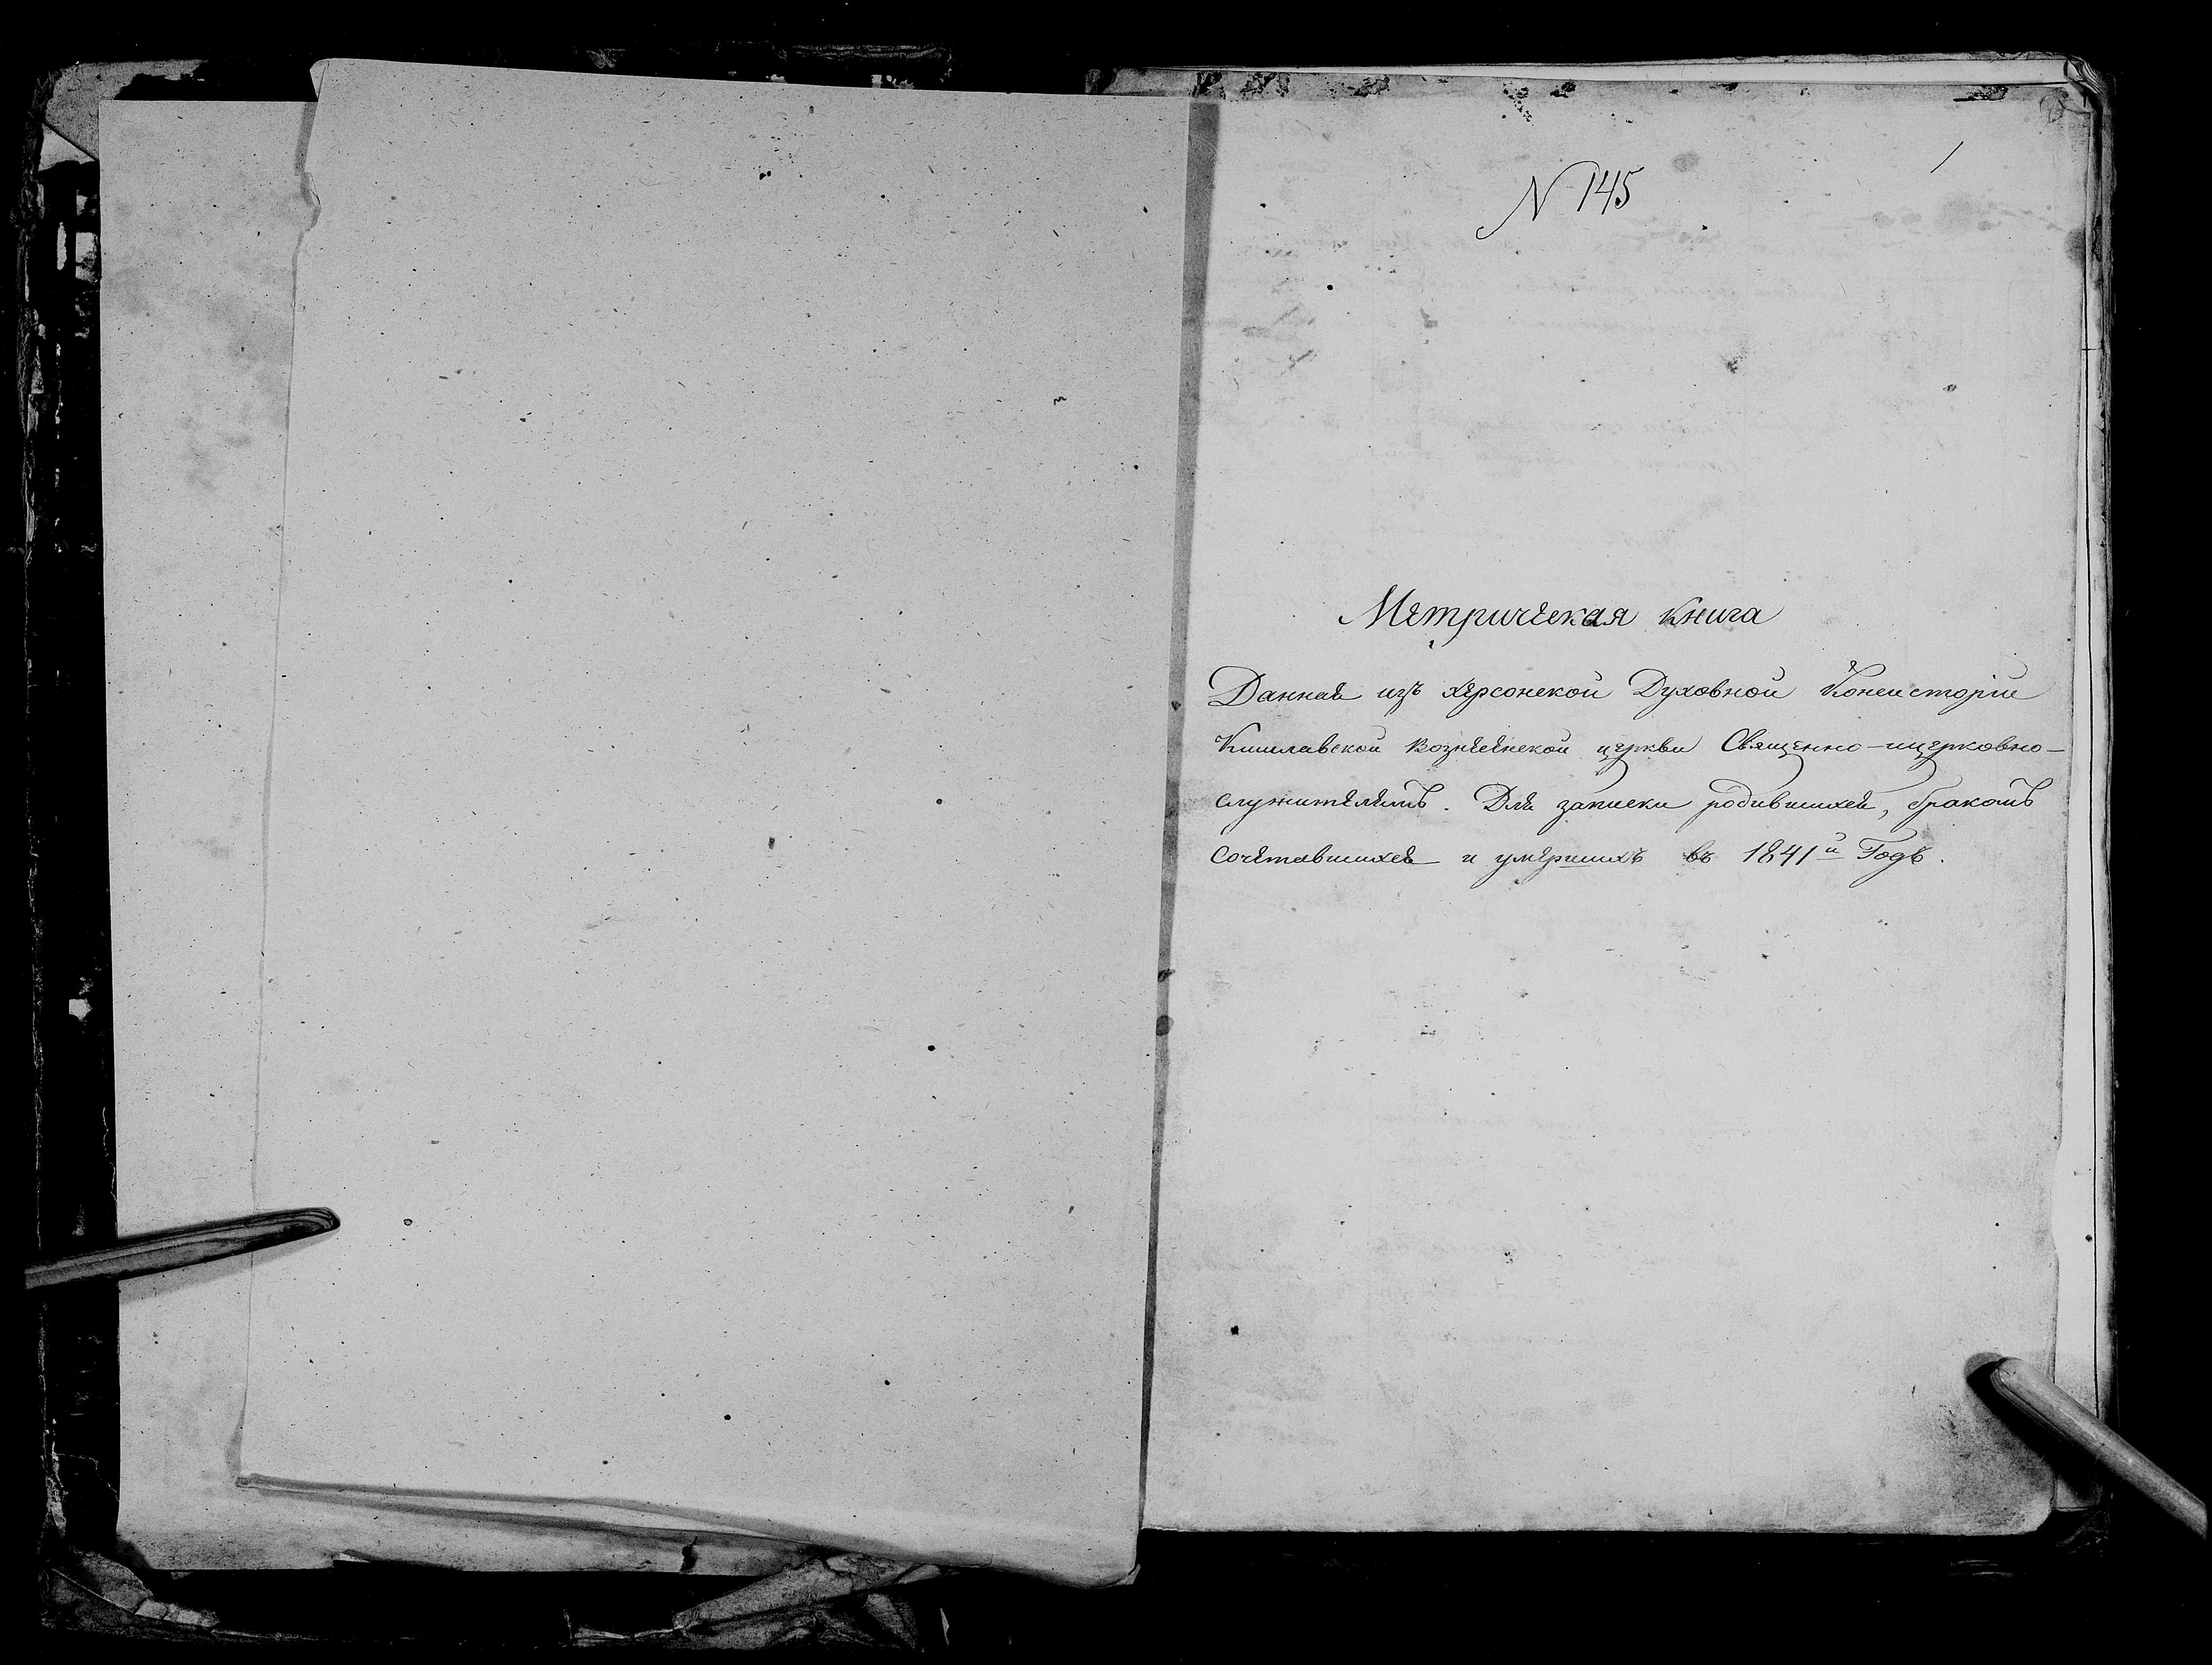 N 145
1
Метрическая книга
Данная изъ Херсонской Духовной Консисторіи
Кишлавской Вознесенской церкви Священно-ицерковно-
служителямъ. Для записки родившихся, бракомъ
сочетавшихся и умершихъ въ 1841й Годъ.